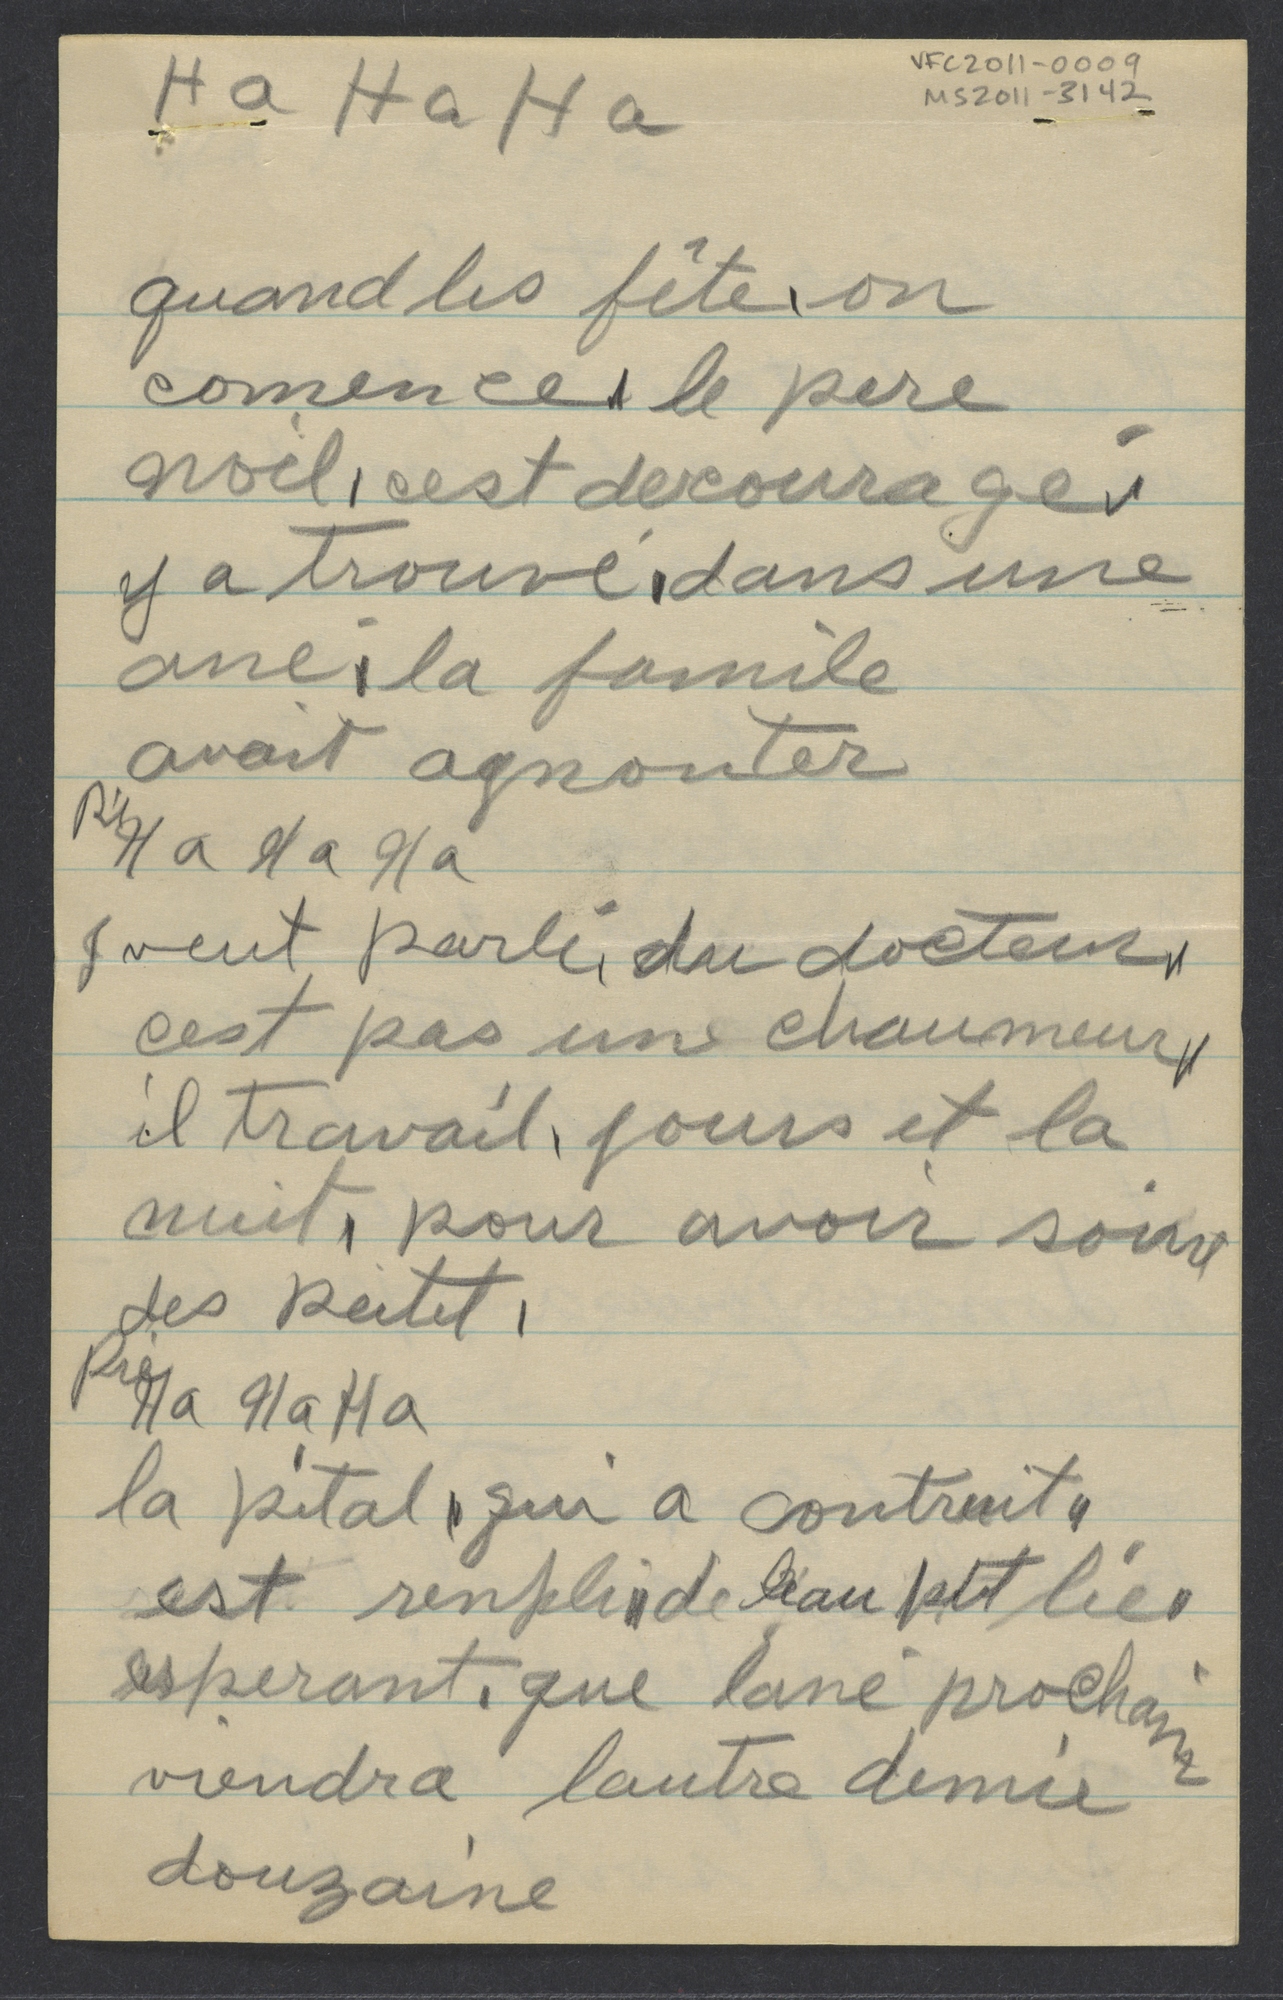 Ha Ha Ha
VFC2011-0009
MS2011-3142
quand les fête, on
comence, le pere
noël, cest decouragé,
y a trouvé, dans une
ané, la famile
avait agnonter
Ha Ha Ha
veut parlé, du docteur,
cest pas une chaumeur,
il travail, jours et la
nuit, pour avoir soins
des peitet,
Ha Ha Ha
la pital, qui a contruit,
est renpli, de beau ptit lie,
esperant, que lané prochaine
viendra lautre demie
douzaine